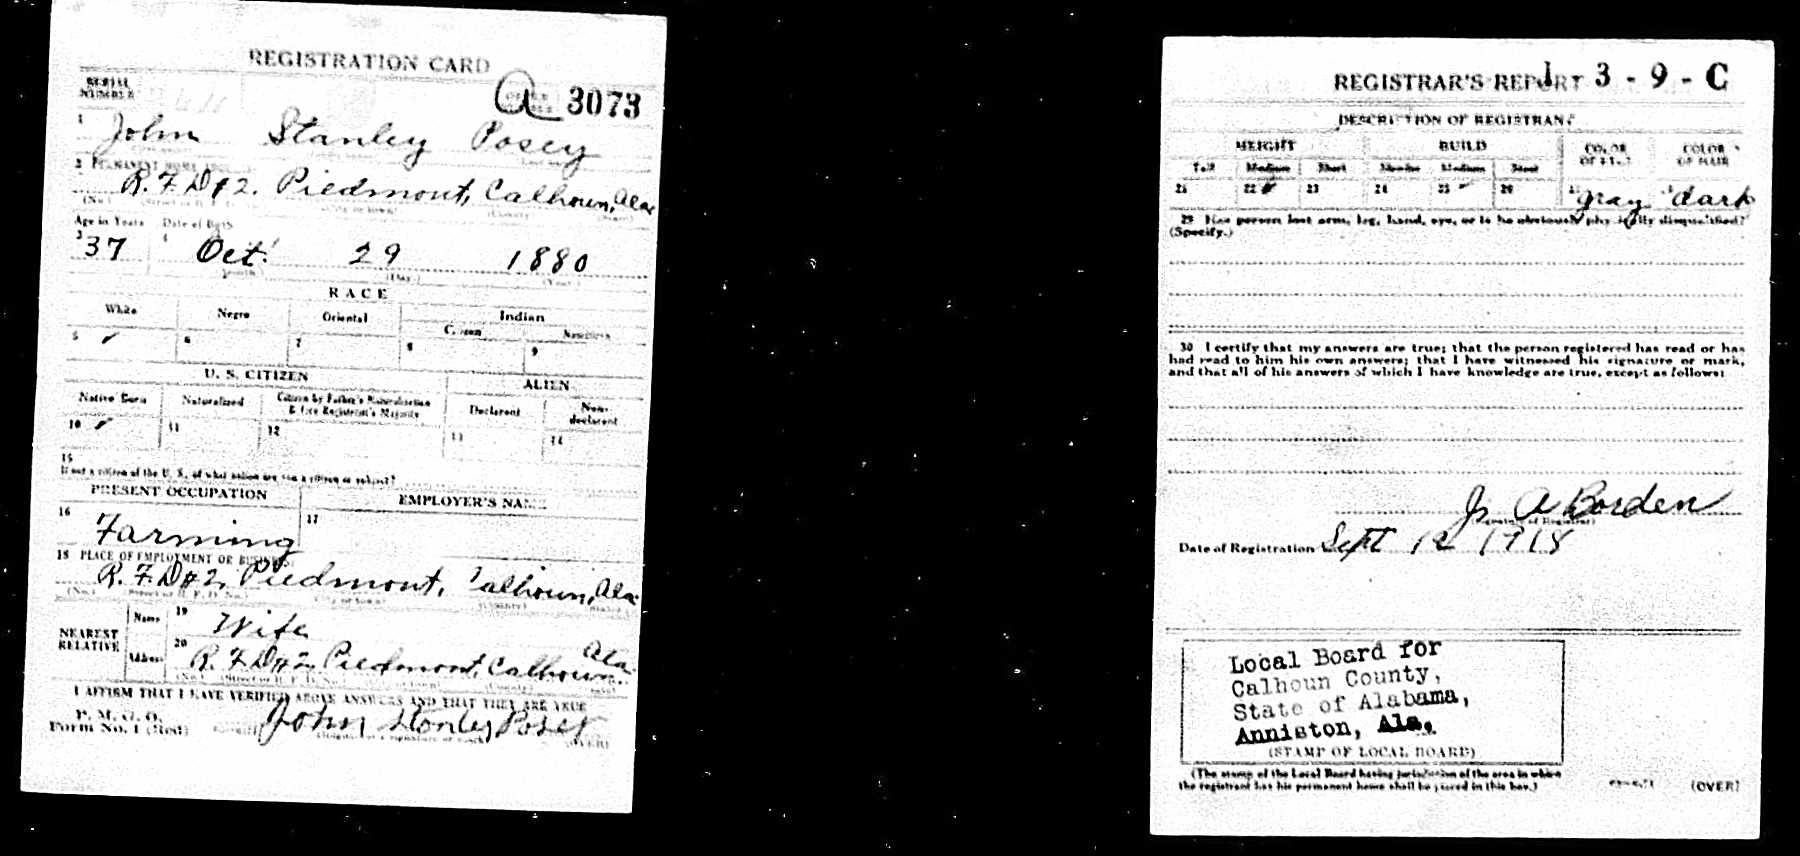 REGISTRATION CARD
SERIAL NUMBER
A 3073
1 John Stanley Posey
2 PERMANENT HOME
R.F.D #2. Piedmont, Calhoun, Ala
(No.) (City or town) (County) (State)
Age in Years Date of Birth
3 37 4 Oct. 29 1880
(Month) (Day) (Year)
RACE
White Negro Oriental Indian
Citizen Noncitizen
5 ✓ 6 7 8 9
U. S. CITIZEN ALIEN
Native Born Naturalized Citizen by Father's Naturalization Declarant Non-
& Before Registrant's Majority declarant
10 ✓ 11 12 13 14
15
If not a citizen of the U. S., of what nation are you a citizen or subject?
PRESENT OCCUPATION EMPLOYER'S NAME
16 Farming 17
18 PLACE OF EMPLOYMENT OR BUSINESS
R.F.D #2, Piedmont, Calhoun, Ala
(No.) (Street or R. F. D. No.) (City or town) (County) (State)
NEAREST RELATIVE
Name 19 Wife
Address 20 R.F.D #2, Piedmont, Calhoun Ala.
I AFFIRM THAT I HAVE VERIFIED ABOVE ANSWERS AND THAT THEY ARE TRUE
P. M. G. O.
Form No. 1 (Red) John Stanley Posey
(OVER)
REGISTRAR'S REPORT 1 3 - 9 - C
DESCRIPTION OF REGISTRANT
HEIGHT BUILD COLOR OF EYES COLOR OF HAIR
Tall Medium Short Slender Medium Stout
21 22 ✓ 23 24 25 ✓ 26 gray dark
29 Has person lost arm, leg, hand, eye, or is he obviously physically disqualified?
(Specify.)
30 I certify that my answers are true; that the person registered has read or has
had read to him his own answers; that I have witnessed his signature or mark,
and that all of his answers of which I have knowledge are true, except as follows:
A Borden
(Signature of Registrar)
Date of Registration Sept 12 1918
Local Board for
Calhoun County,
State of Alabama,
Anniston, Ala.
(STAMP OF LOCAL BOARD)
(The stamp of the Local Board having jurisdiction of the area in which
the registrant has his permanent home shall be placed in this box.)
(OVER)